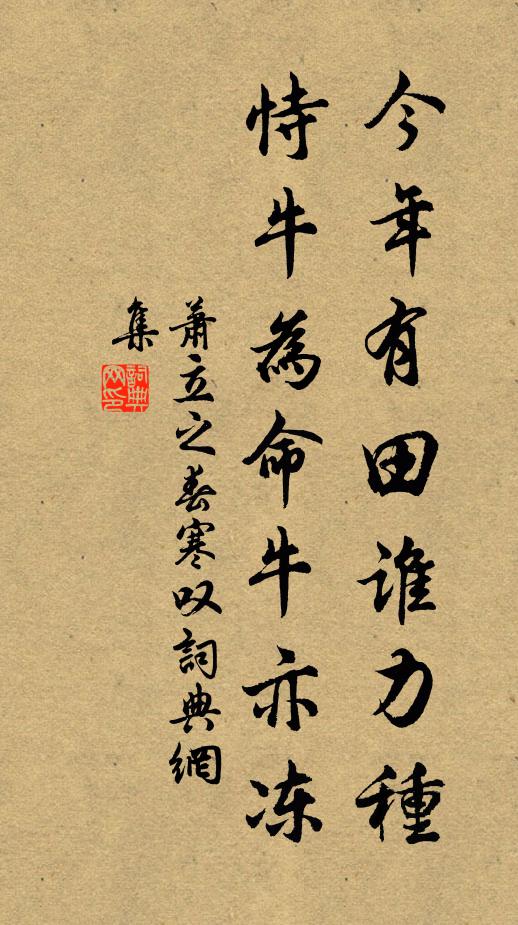 今年有田谁力種
恃牛為命牛亦冻
萧立之春寒叹詞典網
集
詞典
网印